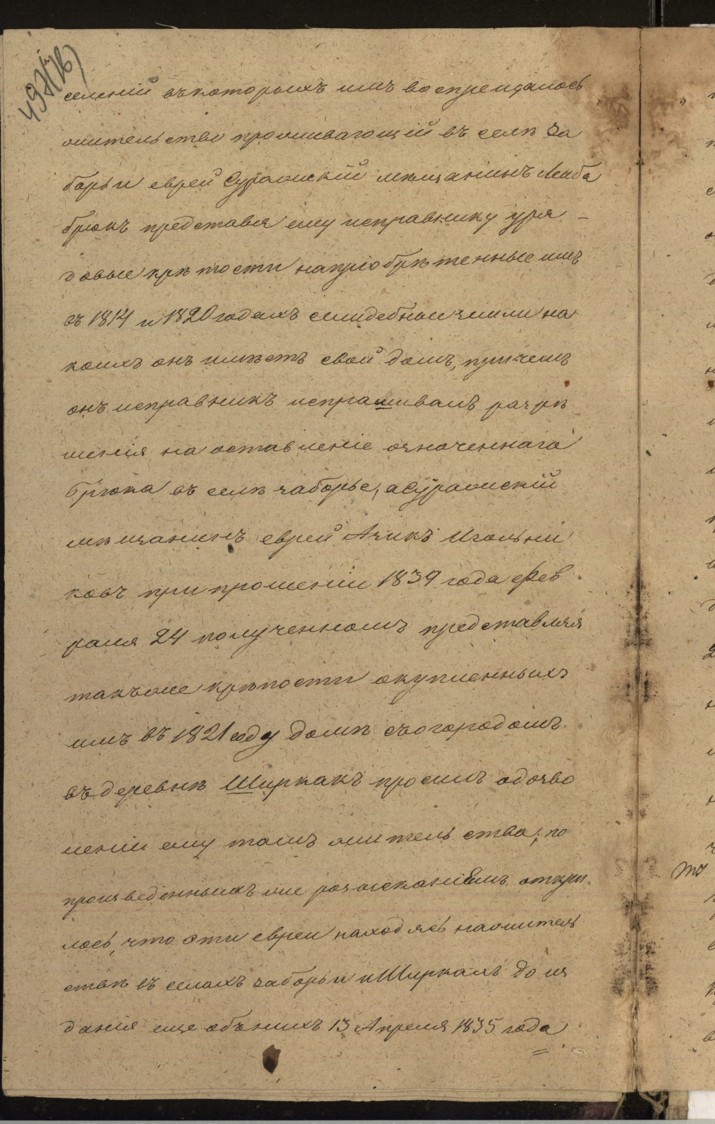 497(76)
селеній въ которыхъ имъ воспрещалось
жительство проживающій въ селѣ За
борьи еврей Суражскій мѣщанинъ Лейба
брюкъ представя ему исправнику уря
довые крѣпости на пріобрѣтенные имъ
въ 1814 и 1820 годахъ усадебные земли на
коихъ онъ имѣетъ свой домъ, причемъ
онъ исправникъ испрашивалъ разрѣ
шенія на оставленіе означеннаго
Брюка въ селѣ заборье, а Суражскій
мѣщанинъ еврей Ачикъ Игольни
ковъ при прошеніи 1839 года Фев
раля 24 полученномъ представляя
такъже крѣпости о купленныхъ
имъ въ 1821 году домѣ съ огородомъ
въ деревнѣ Ширкахъ просилъ о дозво
леніи ему тамъ жительства, по
произведеннымъ же розысканіемъ откры
лось, что эти евреи находясь на житель
ствѣ въ селахъ заборьи и Ширкахъ до из
данія еще объ нихъ 13 Апреля 1835 года